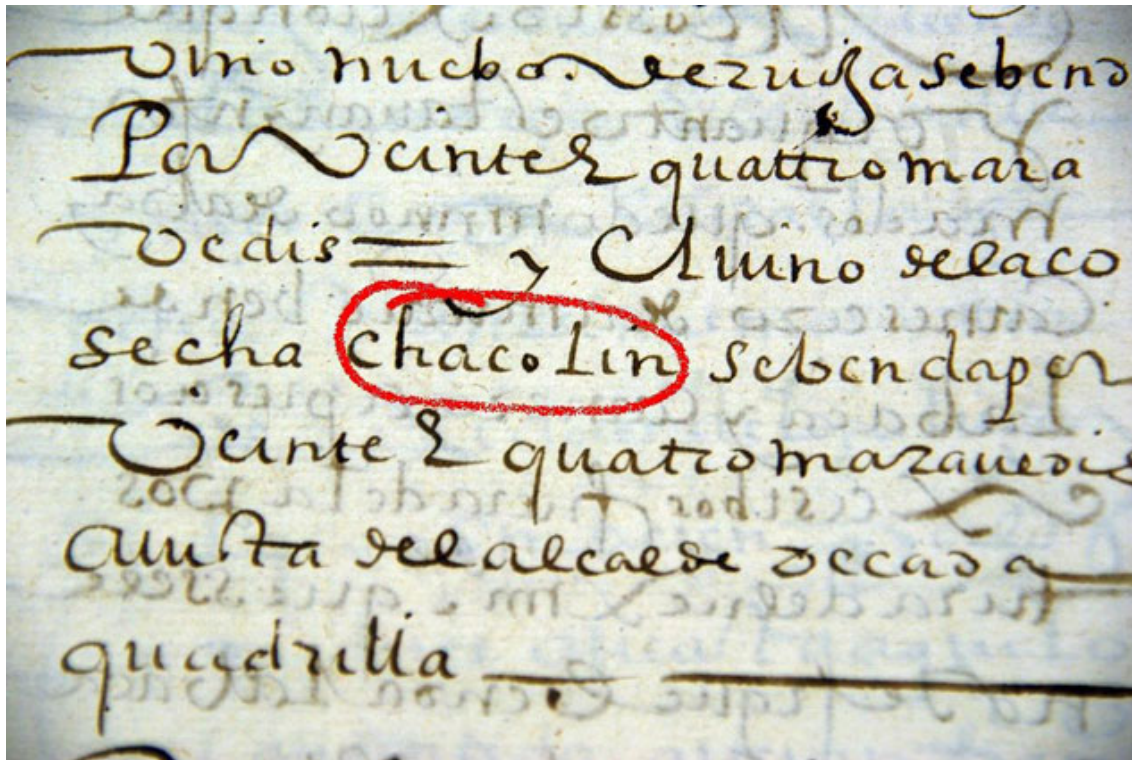 Vino nuebo de rui[...]a se bend
Por Veinte & quattro mara
Vedis = y El uino de la co
secha chacolin se benda por
Veinte & quatro marauedis
a uista del alcalde o cada
quadrilla